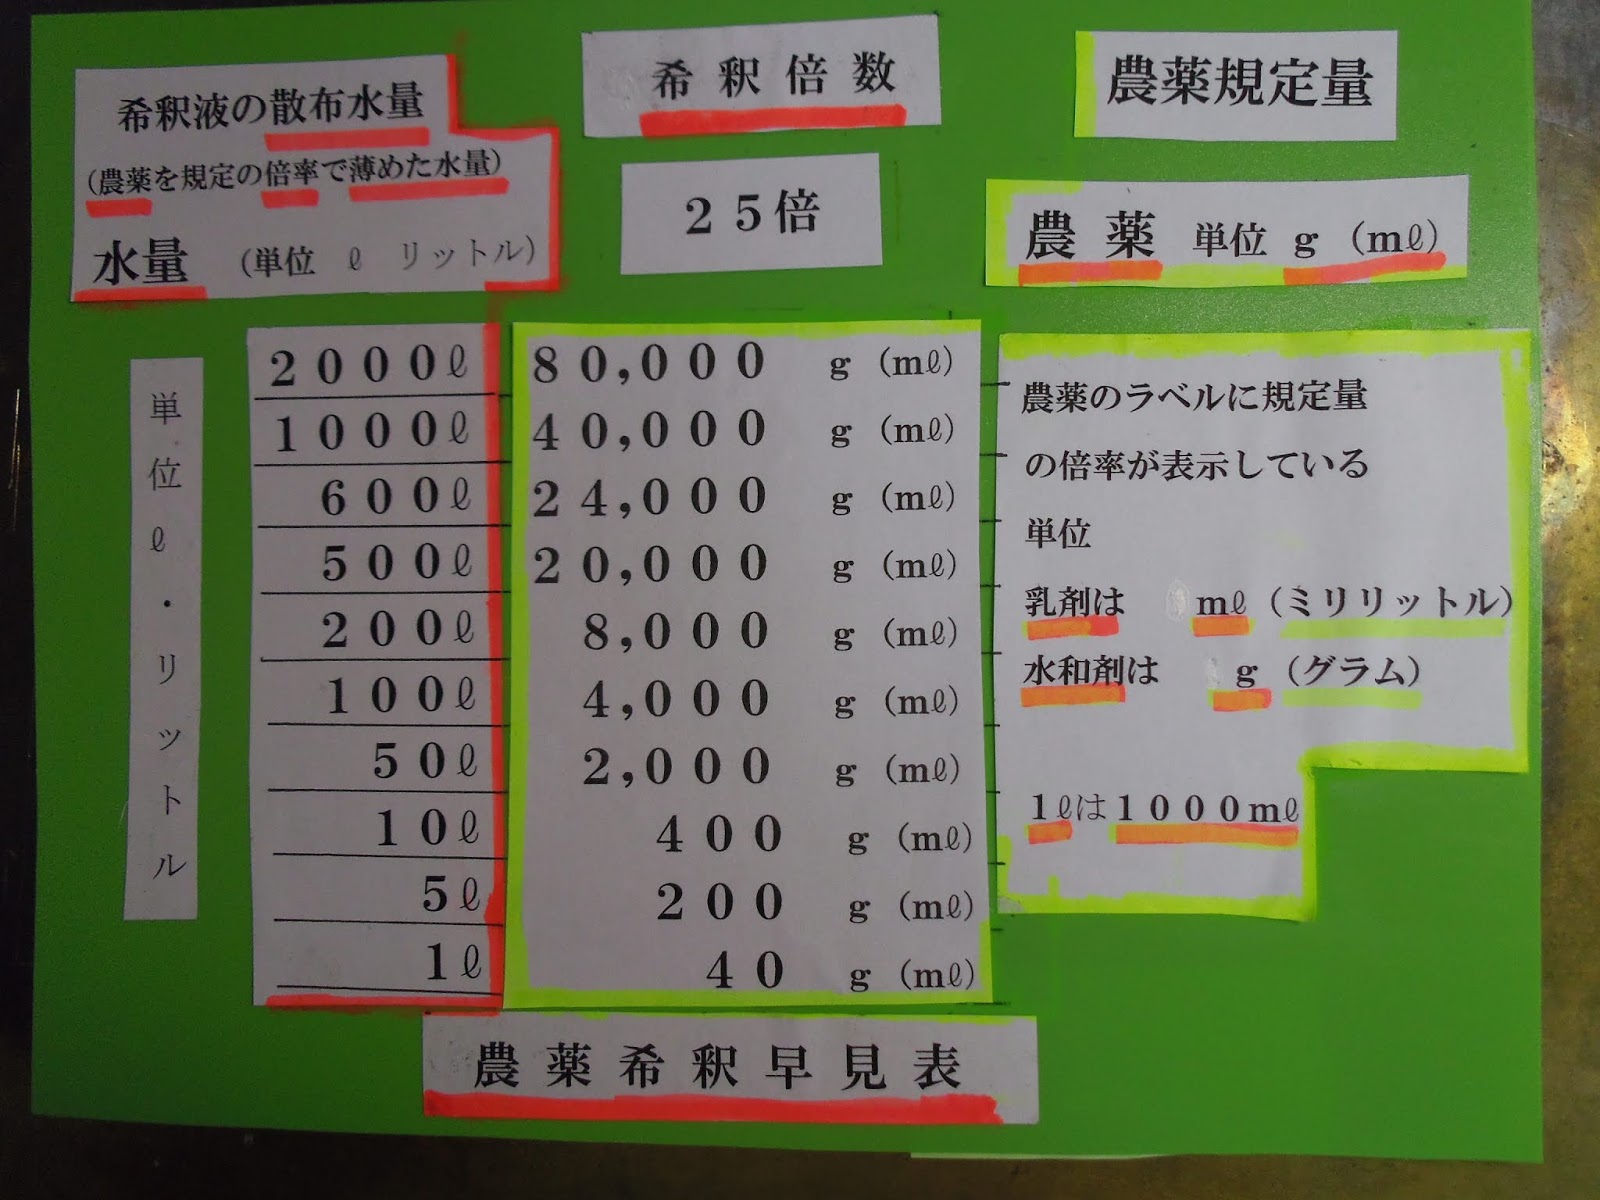 希釈液の散布水量
（農薬を規定の倍率で薄めた水量）
水量　（単位　ℓ　リットル）
希釈倍数
２５倍
農薬規定量
農薬　単位　ｇ（mℓ）
単位ℓ・リットル
２０００ℓ　８０,０００　ｇ（mℓ）
１０００ℓ　４０,０００　ｇ（mℓ）
６００ℓ　２４,０００　ｇ（mℓ）
５００ℓ　２０,０００　ｇ（mℓ）
２００ℓ　８,０００　ｇ（mℓ）
１００ℓ　４,０００　ｇ（mℓ）
５０ℓ　２,０００　ｇ（mℓ）
１０ℓ　４００　ｇ（mℓ）
５ℓ　２００　ｇ（mℓ）
１ℓ　４０　ｇ（mℓ）
農薬のラベルに規定量
の倍率が表示している
単位
乳剤は　mℓ（ミリリットル）
水和剤は　ｇ（グラム）
１ℓは１０００mℓ
農薬希釈早見表